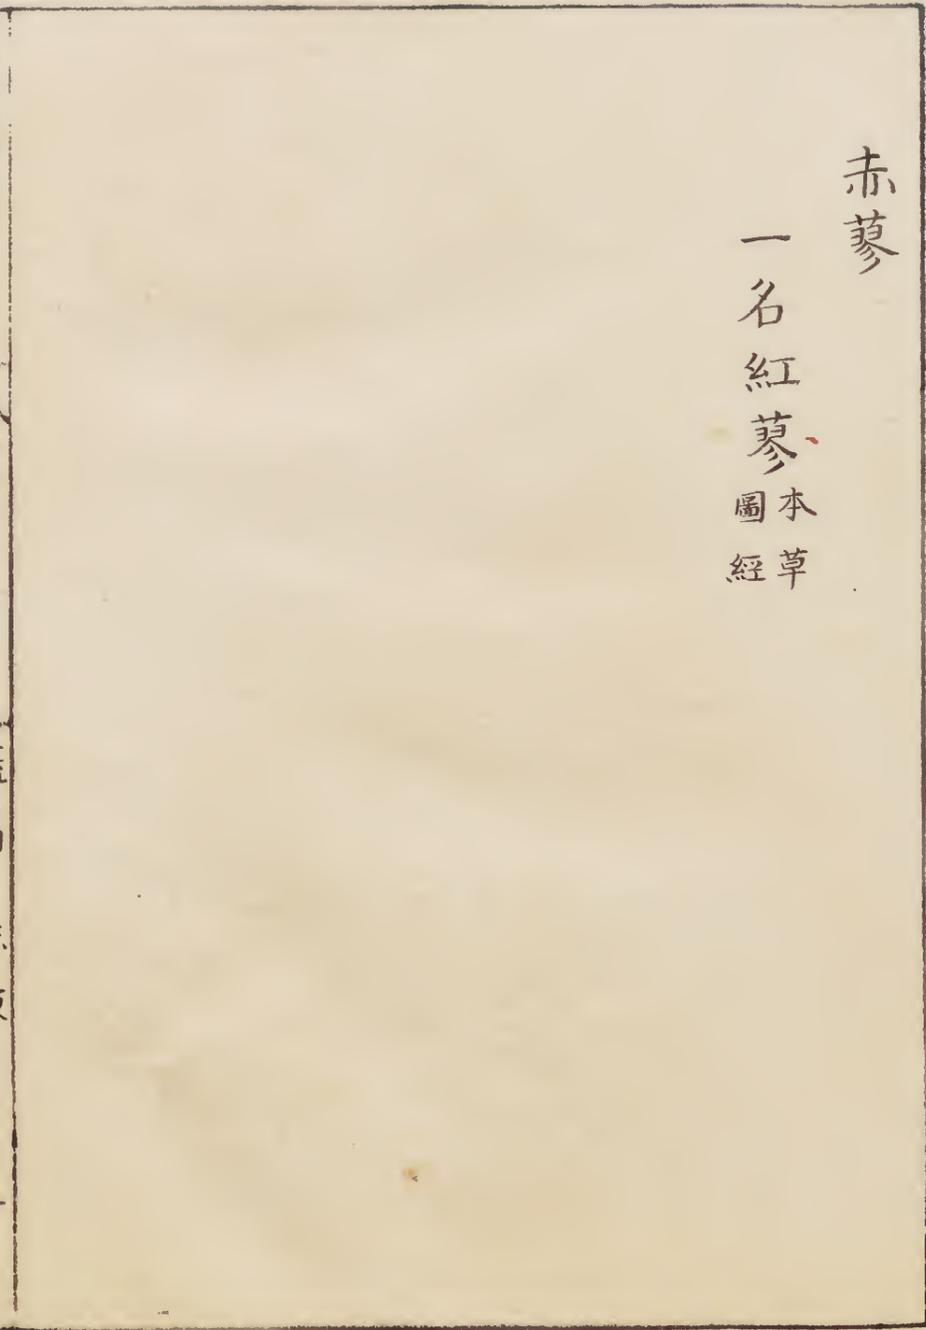 赤蓼
一名紅蓼本草圖經